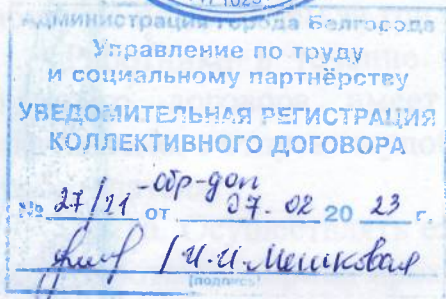 Администрация города Белгорода
Управление по труду
и социальному партнёрству
УВЕДОМИТЕЛЬНАЯ РЕГИСТРАЦИЯ
КОЛЛЕКТИВНОГО ДОГОВОРА
№ 27/21-обр-доп от 07.02 20 23 г.
/И.И. Мешковая
(подпись)